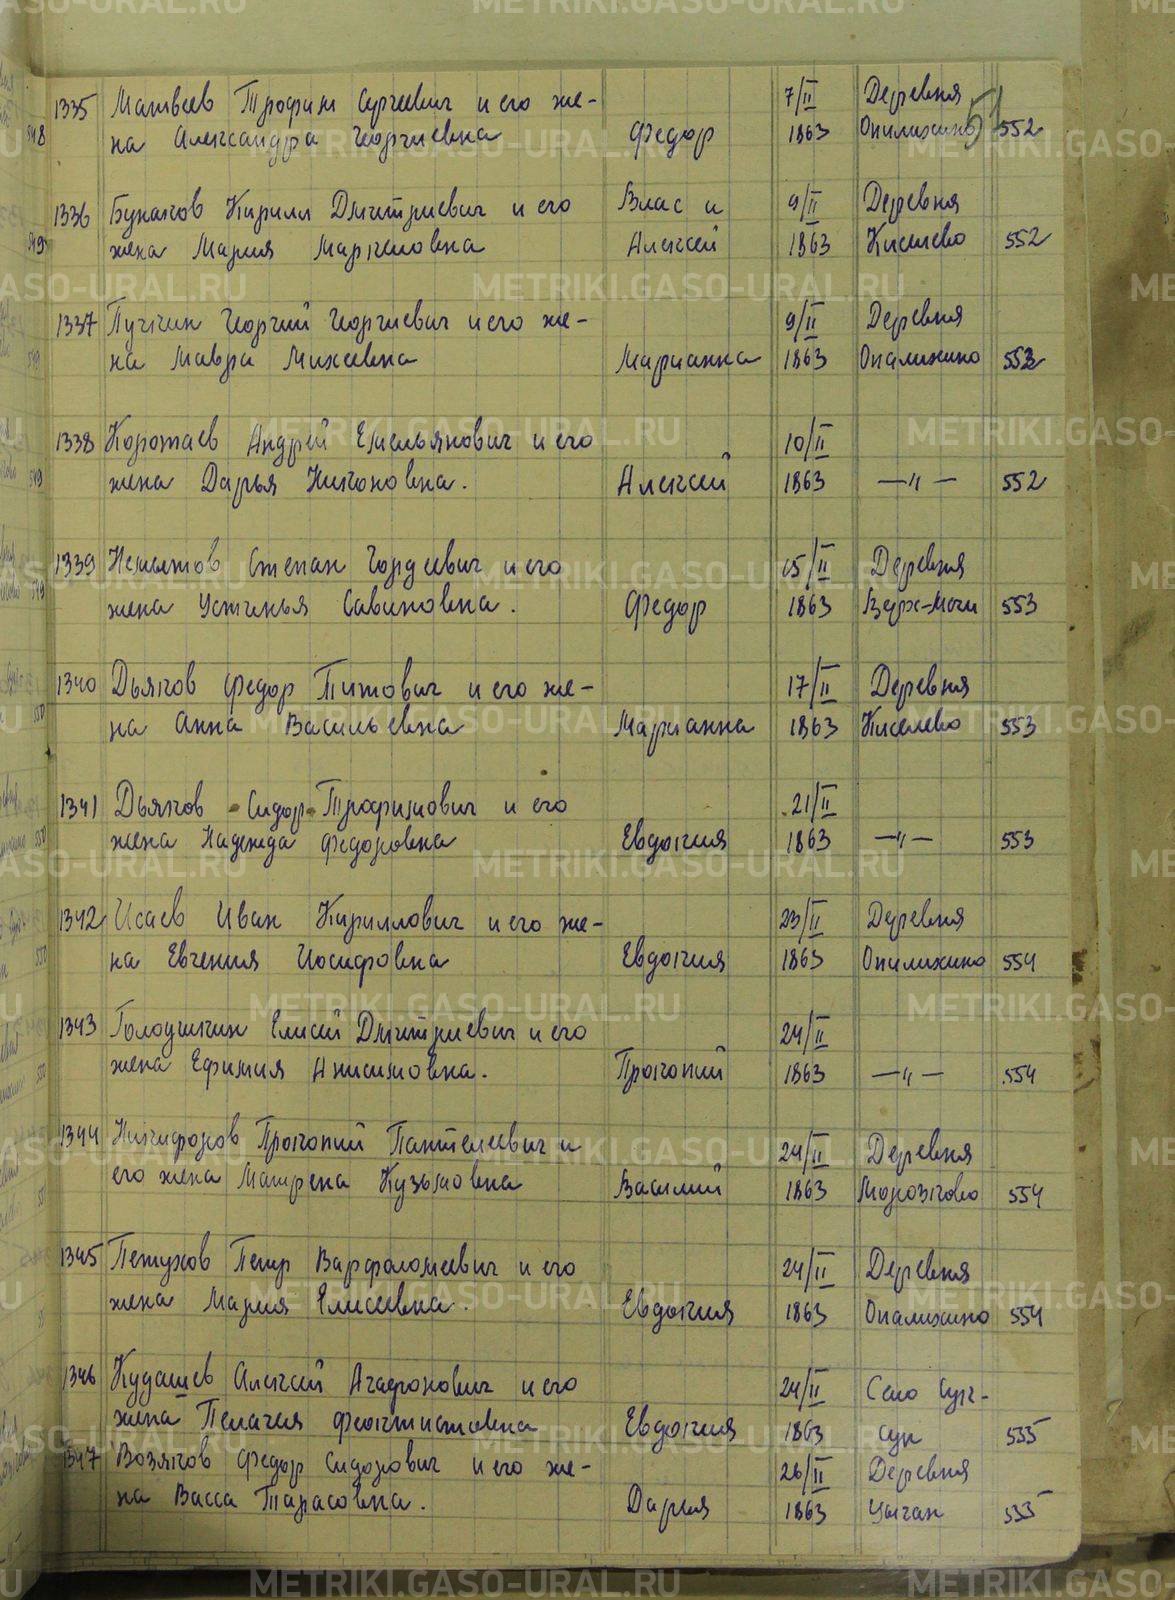 51
1335 Матвеев Трофим Сергеевич и его же- 7/II Деревня
на Александра Георгиевна Федор 1863 Опалихино 552
1336 Бунаков Кирилл Дмитриевич и его Влас и 9/II Деревня
жена Мария Маркеловна Алексей 1863 Киселево 552
1337 Пучкин Георгий Георгиевич и его же- 9/II Деревня
на Мавра Михеевна Марианна 1863 Опалихино 553
1338 Коротаев Андрей Емельянович и его 10/II
жена Дарья Никоновна. Алексей 1863 —„— 552
1339 Степан Гордеевич и его 15/II Деревня
жена Устинья Савиновна. Федор 1863 553
1340 Дьяков Федор Титович и его же- 17/II Деревня
на Анна Васильевна Марианна 1863 Киселево 553
1341 Дьяков Сидор Трофимович и его 21/II
жена Надежда Федоровна Евдокия 1863 —„— 553
1342 Исаев Иван Кириллович и его же- 23/II Деревня
на Евгения Иосифовна Евдокия 1863 Опалихино 554
1343 Голоушкин Елисей Дмитриевич и его 24/II
жена Ефимия Анисимовна. Прокопий 1863 —„— 554
1344 Никифоров Прокопий Пантелеевич и 24/II Деревня
его жена Матрена Кузьмовна Василий 1863 Морозково 554
1345 Петухов Петр Варфоломеевич и его 24/II Деревня
жена Мария Елисеевна. Евдокия 1863 Опалихино 554
1346 Кудашев Алексей Агафонович и его 24/II Село Сук-
жена Пелагея Феоктистовна Евдокия 1863 сун 555
1347 Возяков Федор Сидорович и его же- 26/II Деревня
на Васса Тарасовна. Дарья 1863 Цыган 555
METRIKI.GASO-URAL.RU